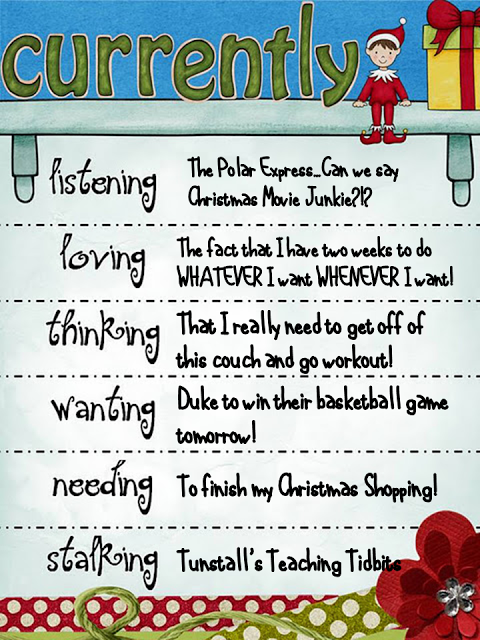 currently
listening
The Polar Express...Can we say
Christmas Movie Junkie?!?
loving
The fact that I have two weeks to do
WHATEVER I want WHENEVER I want!
thinking
That I really need to get off of
this couch and go workout!
wanting
Duke to win their basketball game
tomorrow!
needing
To finish my Christmas Shopping!
stalking
Tunstall's Teaching Tidbits